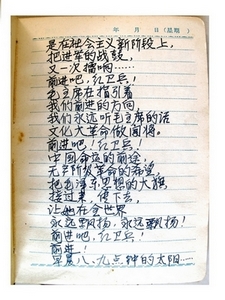 年 月 日 (星期 )
是在社会主义新阶段上，
把进军的战鼓，
又一次擂响……
前进吧，红卫兵！
毛主席在指引着
我们前进的方向
我们永远听毛主席的话
文化大革命做闯将。
前进吧！红卫兵！
中国命运的前途，
无产阶级革命的希望
把毛泽东思想的大旗
接过来，传下去，
让他在全世界
永远飘扬，永远飘扬！
前进吧，红卫兵！
前进！
早晨八、九点钟的太阳……